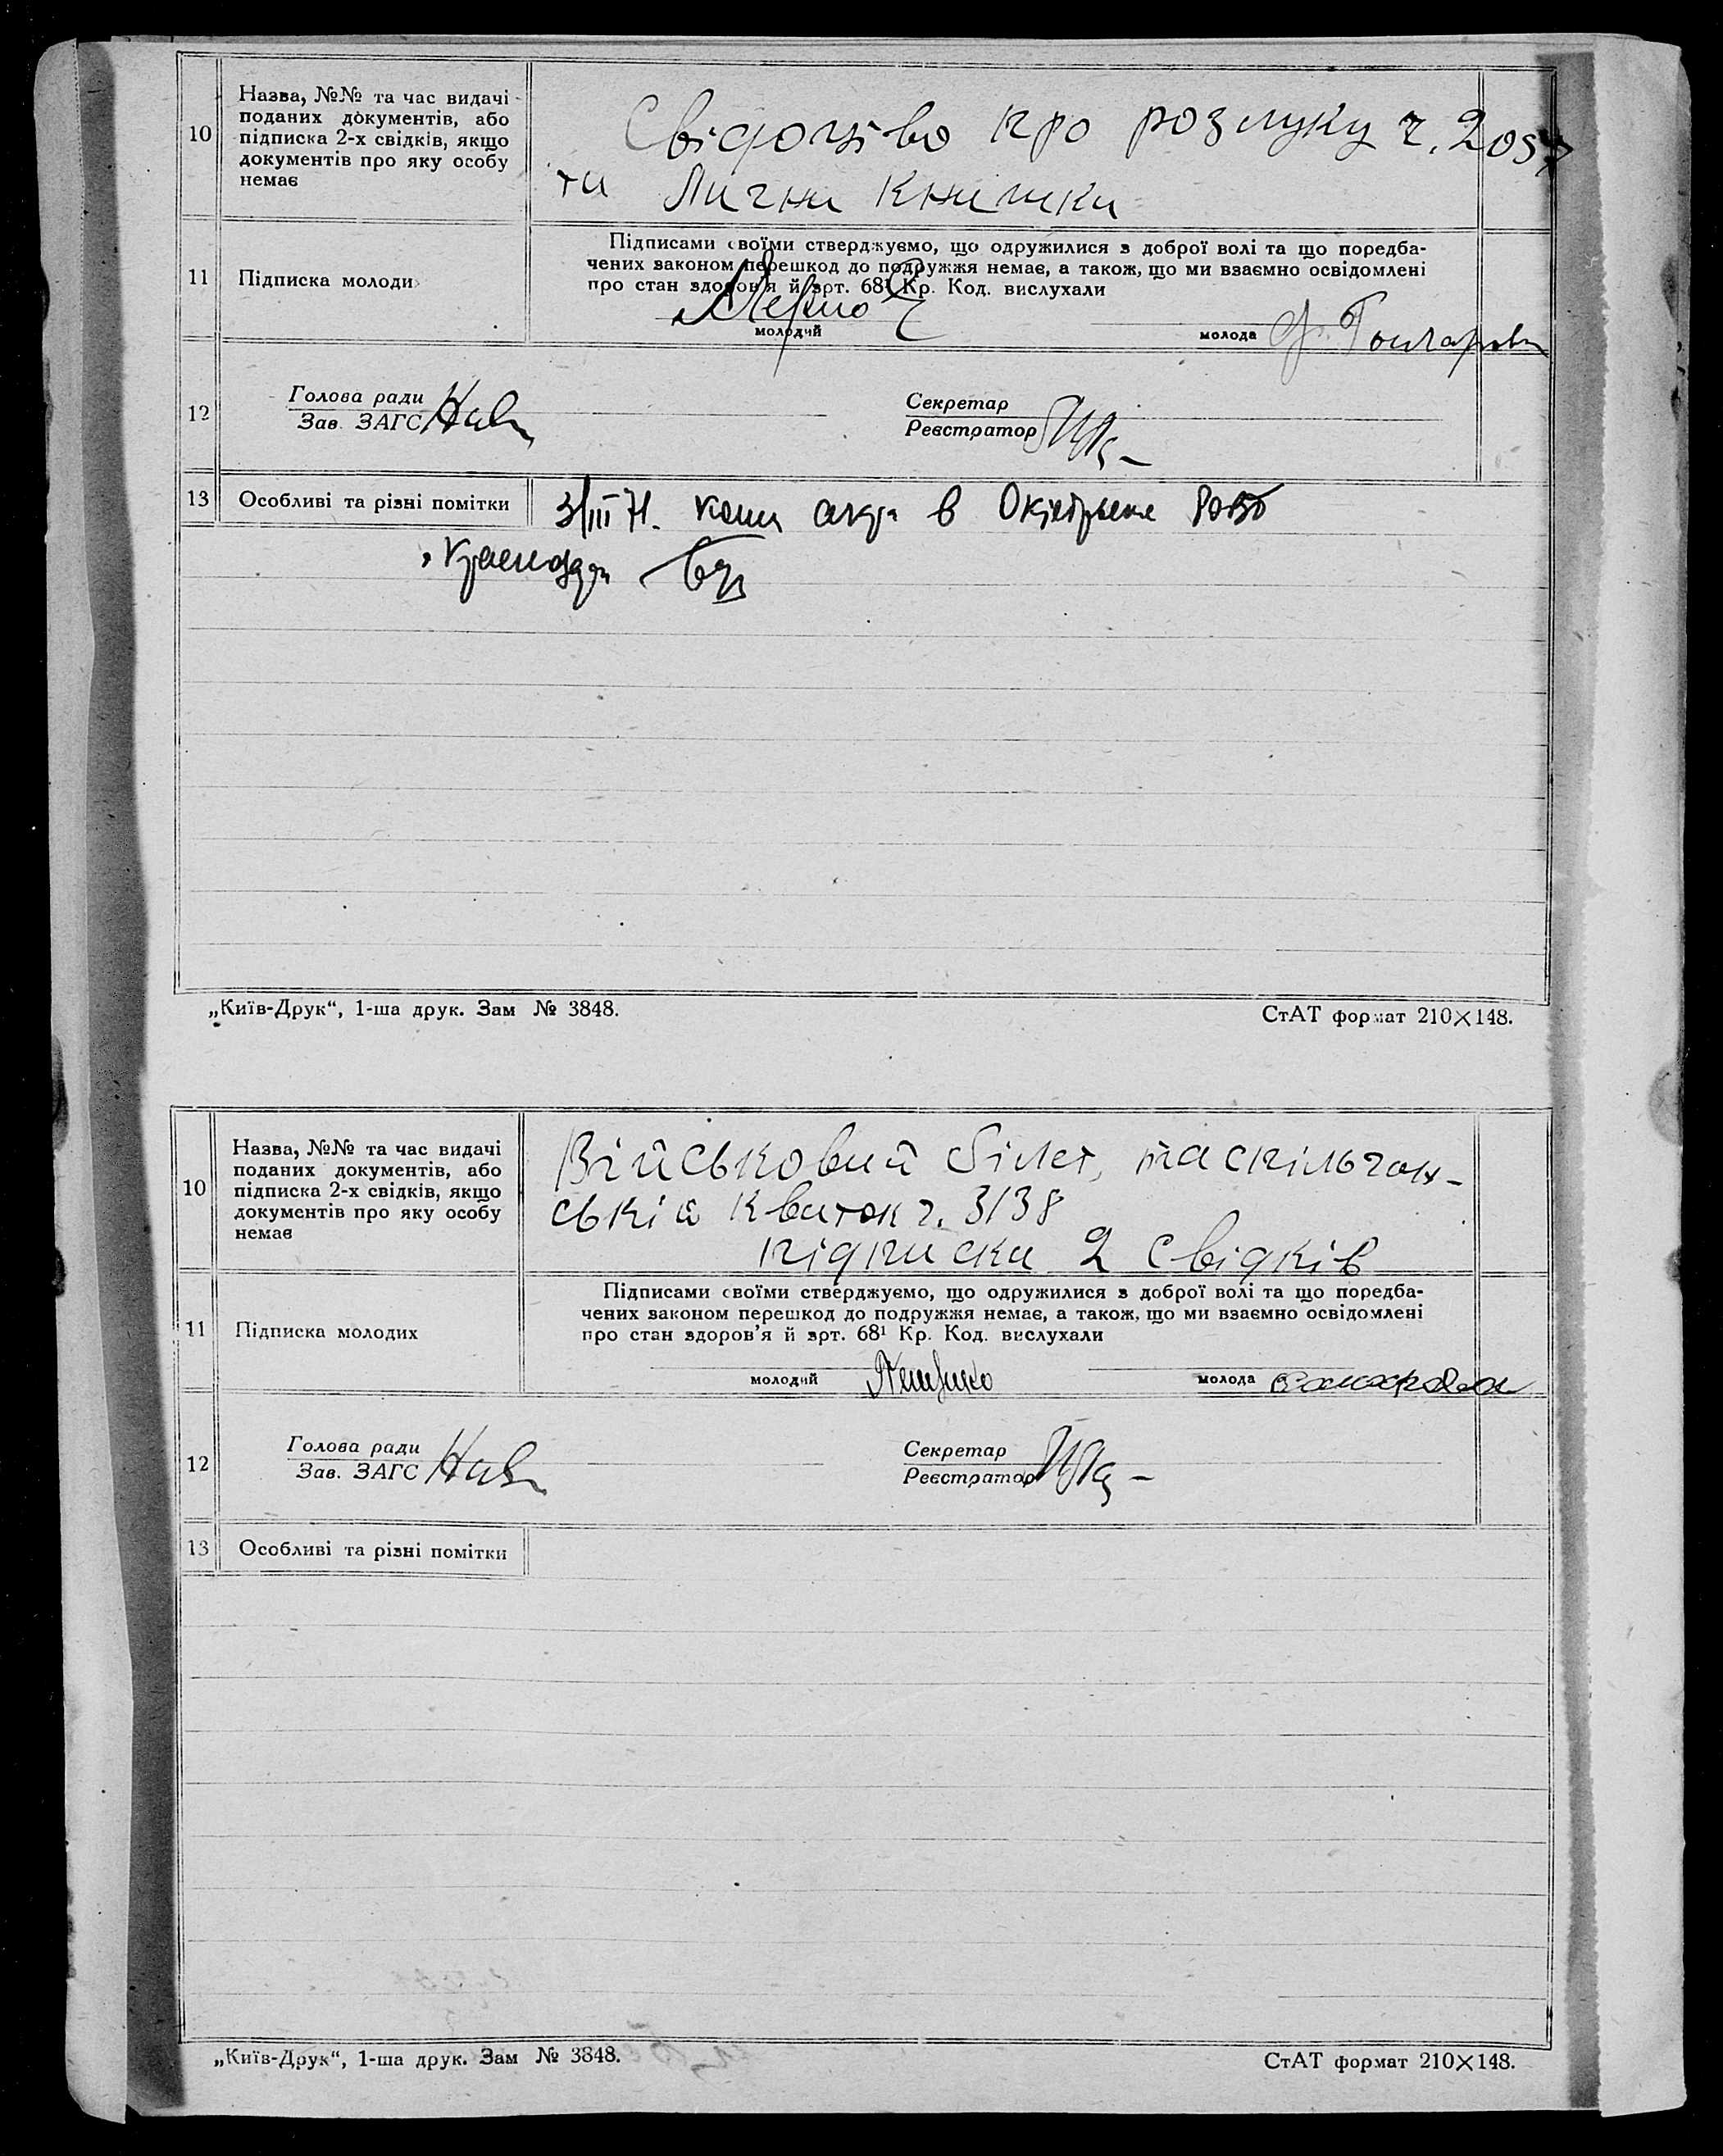 10
Назва, №№ та час видачі
поданих документів, або
підписка 2-х свідків, якщо
документів про яку особу
немає
Свідоцтво про розлуку ч. 2057
та Лични книжки
11
Підписка молодих
Підписами своїми стверджуємо, що одружилися з доброї волі та що поредба-
чених законом перешкод до подружжя немає, а також, що ми взаємно освідомлені
про стан здоров'я й врт. 68¹ Кр. Код. вислухали
молодий
молода Гончарова
12
Голова ради
Зав. ЗАГС
Секретар
Реєстратор
13
Особливі та різні помітки
3/III 71. в
„Київ-Друк“, 1-ша друк. Зам № 3848.
СтАТ формат 210×148.
10
Назва, №№ та час видачі
поданих документів, або
підписка 2-х свідків, якщо
документів про яку особу
немає
Військовий білет, та спільчан-
ській квиток ч. 3138
підписки 2 свідків
11
Підписка молодих
Підписами своїми стверджуємо, що одружилися з доброї волі та що поредба-
чених законом перешкод до подружжя немає, а також, що ми взаємно освідомлені
про стан здоров'я й врт. 68¹ Кр. Код. вислухали
молодий
молода
12
Голова ради
Зав. ЗАГС
Секретар
Реєстратор
13
Особливі та різні помітки
„Київ-Друк“, 1-ша друк. Зам № 3848.
СтАТ формат 210×148.